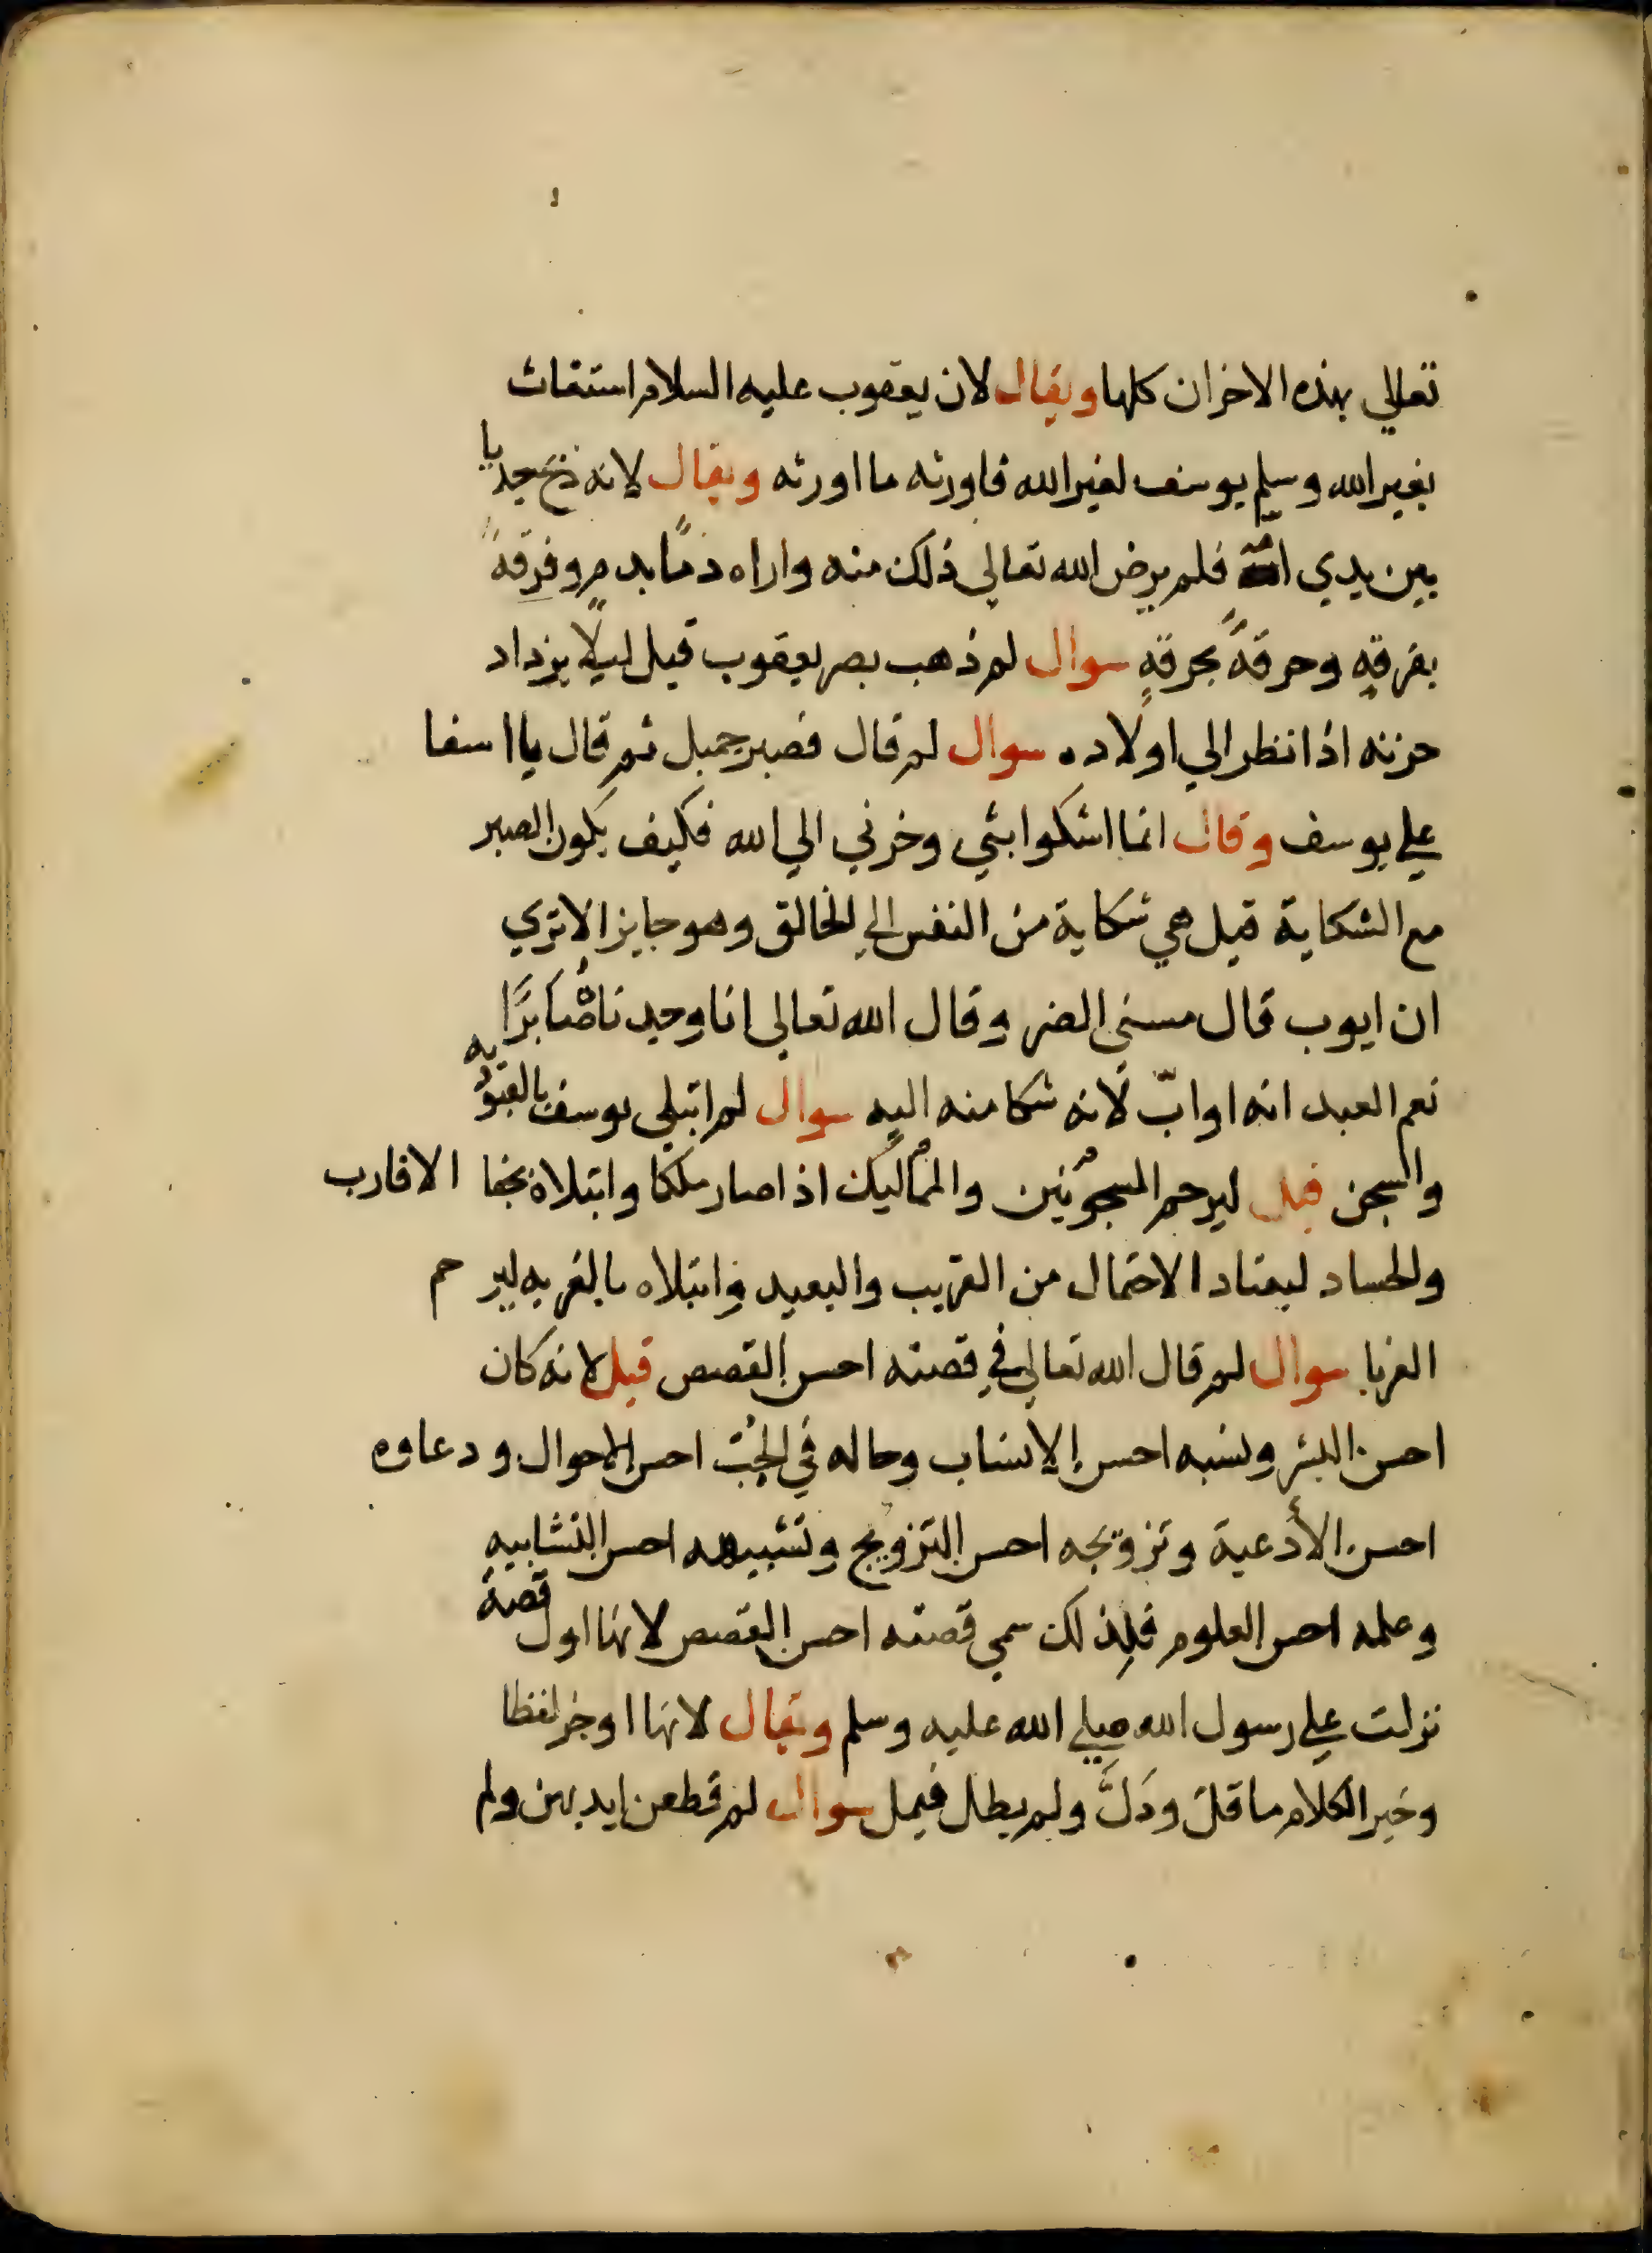 تعالي بهذه الاخزان كلها ويقال لان يعقوب عليه السلام استغاث
بغير الله وسلم يوسف لغير الله فاورثه ما اورثه ويقال لانه ذبح جديا
بين يدي امه فلم يرض الله تعالي ذلك منه واراه دمًا بدمٍ وفرقةً
بفرقةٍ وحرقةً بحرقةٍ سوال لم ذهب بصر يعقوب قيل ليلا يزداد
حزنه اذا نظر الي اولاده سوال لم قال فصبر جميل ثم قال يا اسفا
علي يوسف وقال انما اشكوا بثي وخزني الي الله فكيف يكون الصبر
مع الشكاية قيل هي شكاية من النفس الي الخالق وهو جايز الا تري
ان ايوب قال مسني الضر وقال الله تعالي انا وجدناه صابرًا
نعم العبد انه اوابّ لانه شكا منه اليه سوال لم ابتلي يوسف بالعبوديه
والسجن قيل ليرحم المسجونين والمماليك اذا صار ملكا وابتلاه بجفا الاقارب
والحساد ليعتاد الاحتمال من القريب والبعيد وابتلاه بالغربه ليرحم
الغربا سوال لم قال الله تعالي في قصته احسن القصص قيل لانه كان
احسن البشر ونسبه احسن الانساب وحاله في الجب احسن الاحوال ودعاوه
احسن الأدعية وتزويجه احسن التزويج وتشبيهه احسن التشابيه
وعلمه احسن العلوم فلذلك سمي قصته احسن القصص لانها اول قصة
نزلت علي رسول الله صلي الله عليه وسلم ويقال لانها اوجز لفظا
وخير الكلام ما قل ودَلَّ ولم يطل فيمل سوال لم قطعن ايديهن ولم